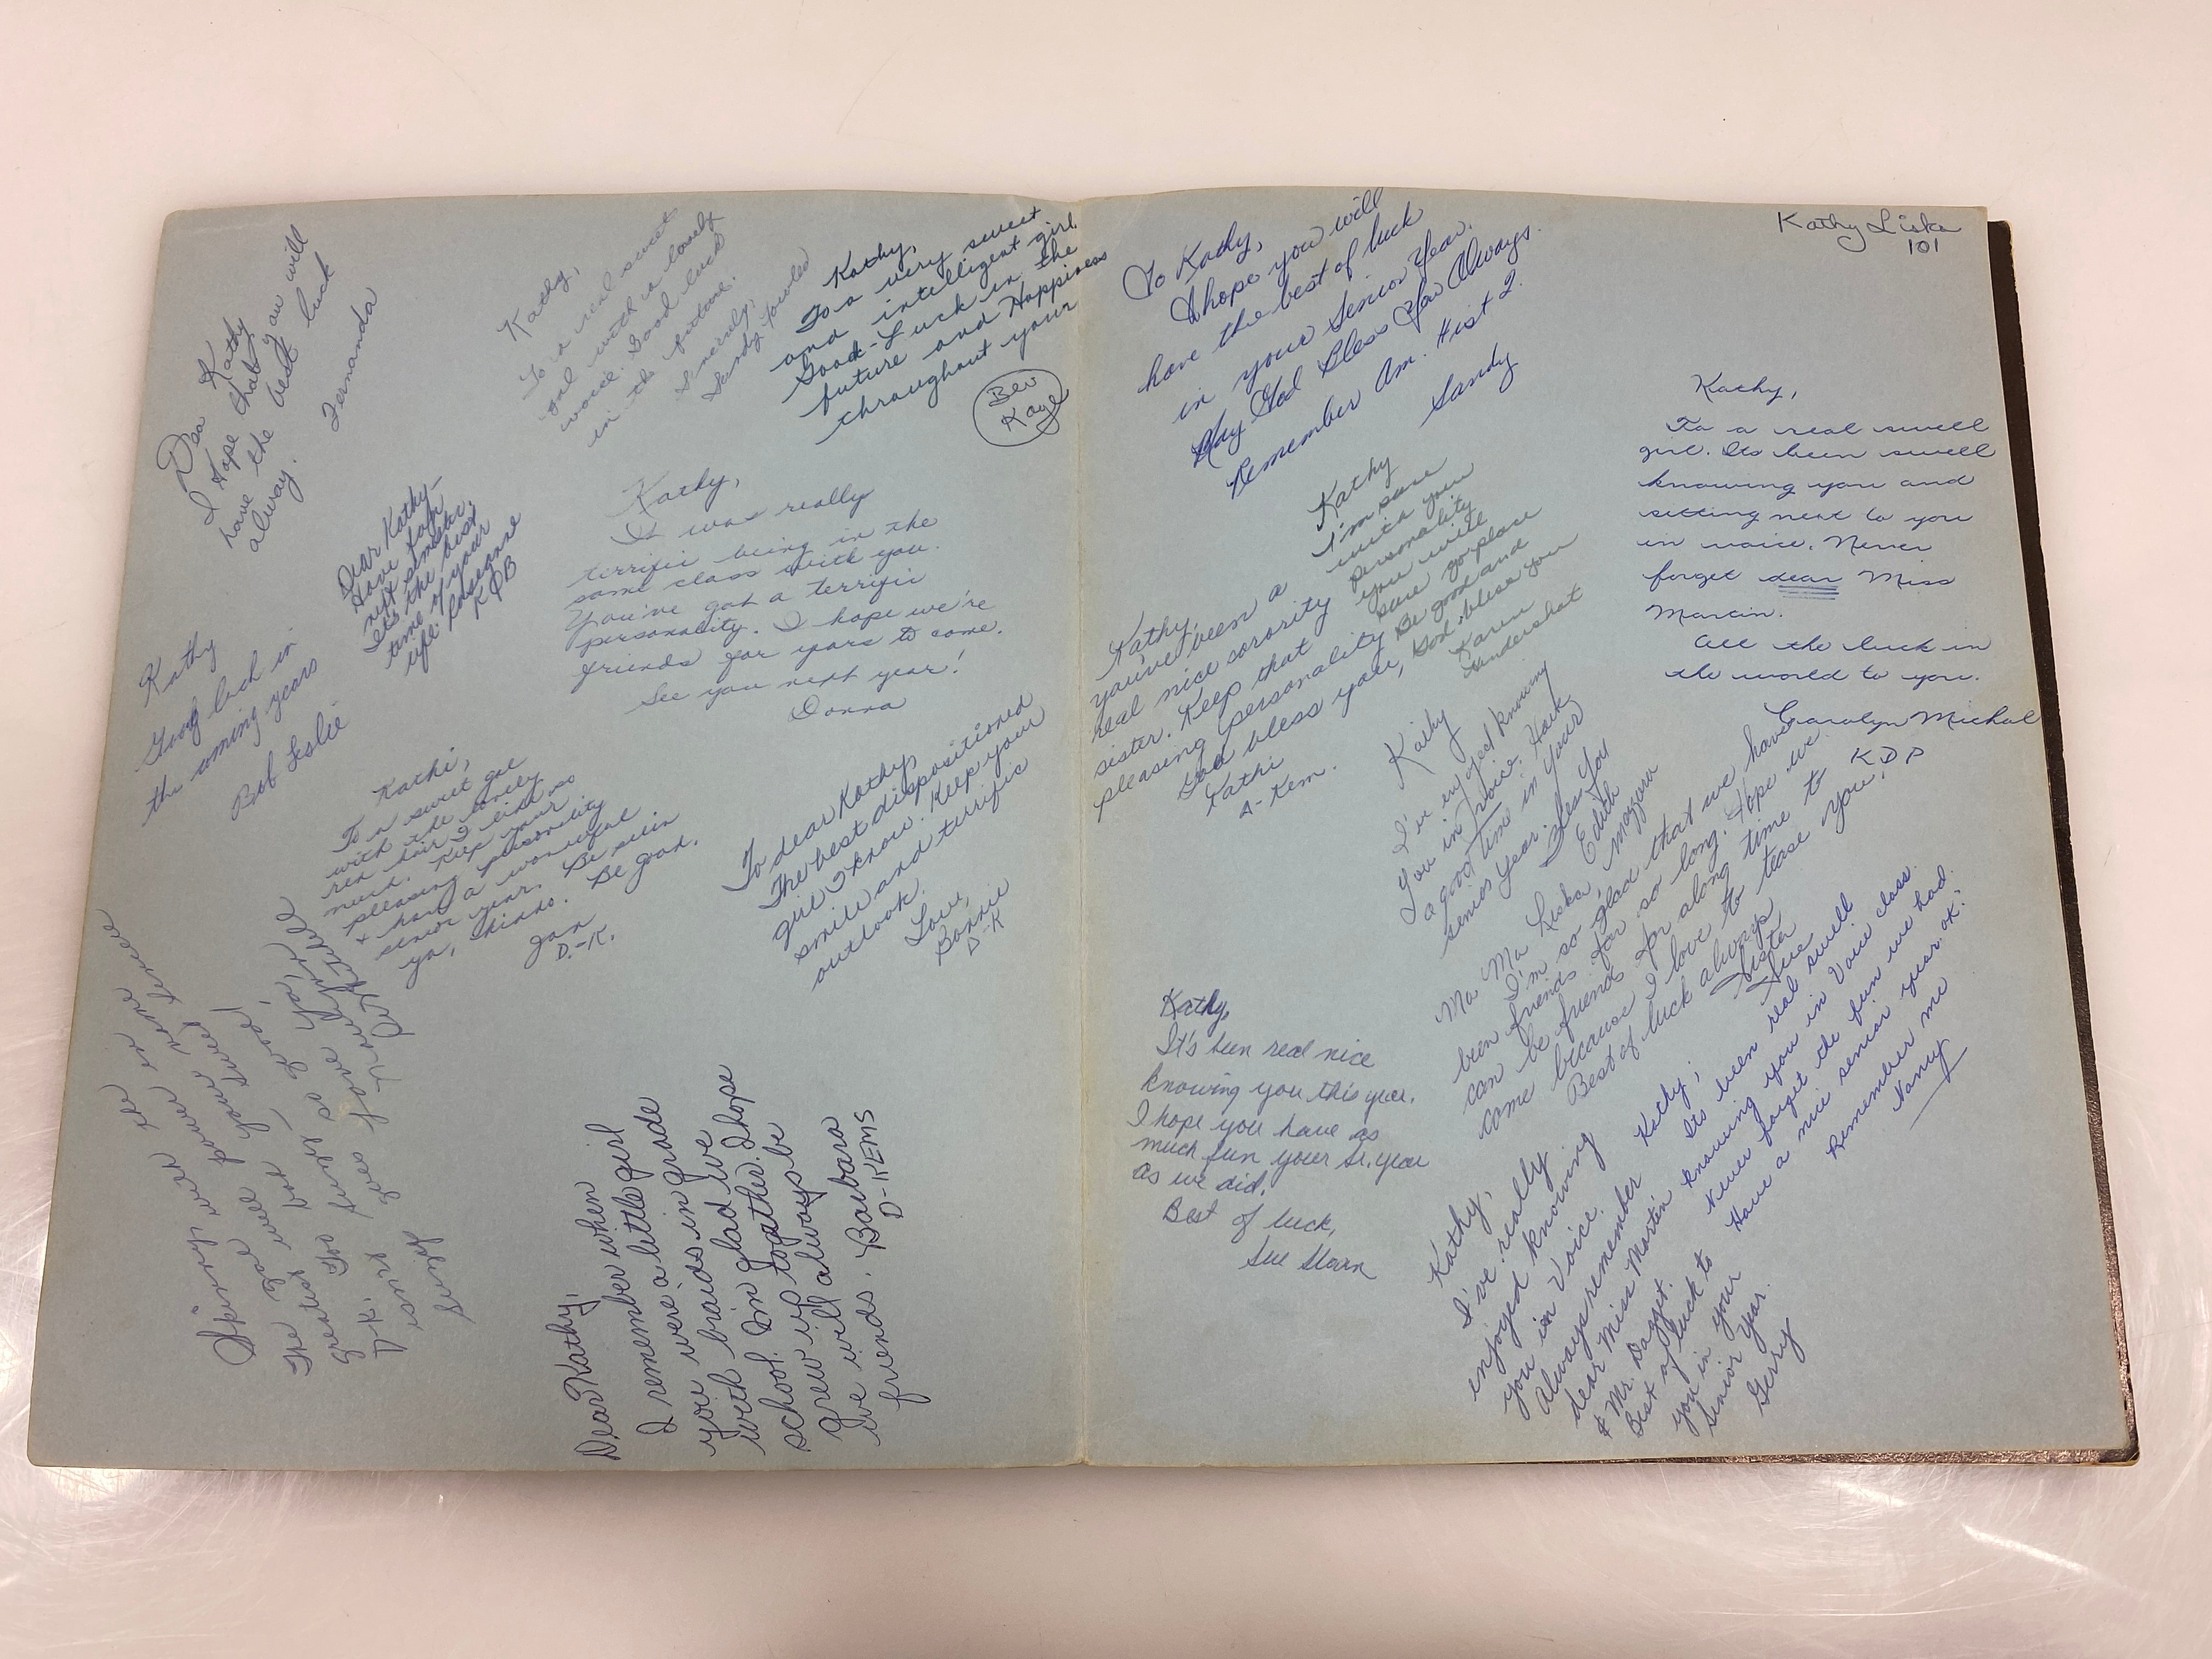 Dear Kathy
I Hope that you will
have the best luck
alway.
Fernanda
Kathy,
To a real sweet
gal with a lovely
voice. Good luck
in the future.
Sincerely,
Sandy
Kathy,
To a very sweet
and intelligent girl.
Good-Luck in the
future and Happiness
throughout your
Bev
Kaye
Dear Kathy-
Have fun
next
It's the best
time of your
life. Roseanne
KDB
Kathy,
It was really
terrific being in the
same class with you.
You've got a terrific
personality. I hope we're
friends for years to come.
See you next year!
Donna
Kathy
Good luck in
the coming years
Bob Leslie
Kathi,
To a sweet gal
with the lovely
red hair I
Keep your
pleasing personality
& have a wonderful
senior year. Be seein
ya, Be good.
Jan
D.-K.
To dear Kathy,
The best dispositioned
girl I know. Keep your
smile and terrific
outlook.
Love,
Bonnie
D-K
"Skinny" will
The
greatest will
D-K.
Suzy
Dear Kathy,
I remember when
you were a little girl
with braids in grade
school. I'm glad we
grew up together. I hope
we will always be
friends. Barbara
D-KEMS
To Kathy,
I hope you will
have the best of luck
in your Senior Year.
May God Bless You Always.
Remember Am. Hist 2.
Sandy
Kathy Liska
101
Kathy,
To a real swell
girl. Its been swell
knowing you and
sitting next to you
in voice. Never
forget dear Miss
Martin.
All the luck in
the world to you.
Carolyn Michal
KDP
Kathy
I'm sure
with your
personality
you will
Be good and
God bless you
Karen
Hendershot
Kathy,
you've been a
real nice sorority
sister. Keep that
pleasing personality
God bless you,
Kathi
D-Kem.
Kathy
I've enjoyed knowing
you in voice. Have
a good time in your
senior year. See You
Edith
Ma Ma Liska,
I'm so glad that we have
been friends for so long. Hope we
can be friends for along time to
come because I love to tease you.
Best of luck always
Sista
Sue
Kathy,
It's been real nice
knowing you this year.
I hope you have as
much fun your Sr. year
as we did.
Best of luck,
Sue
Kathy,
Its been real swell
knowing you in Voice class.
Never forget the fun we had.
Have a nice senior year. ok?
Remember me
Nancy
Kathy,
I've really
enjoyed knowing
you in Voice.
Always remember
dear Miss Martin
& Mr. Dagget.
Best of luck to
you in your
Senior Year.
Gerry